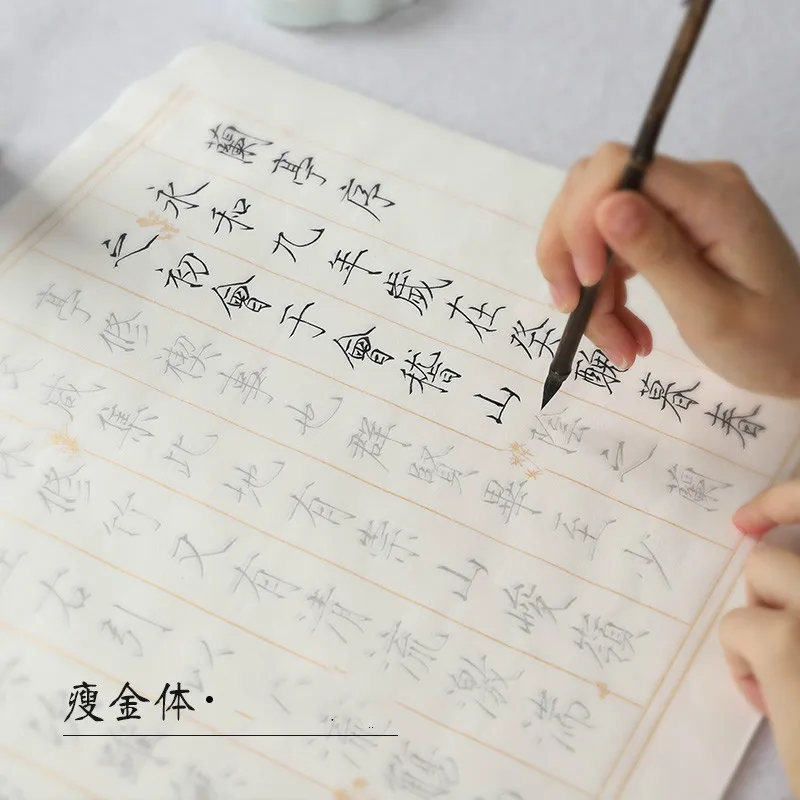 蘭亭序
永和九年歲在癸醜暮春
之初會于會稽山陰之蘭
亭修禊事也群賢畢至少
咸集此地有崇山峻嶺
林修竹又有清流激湍
右引以
流觴
瘦金体·